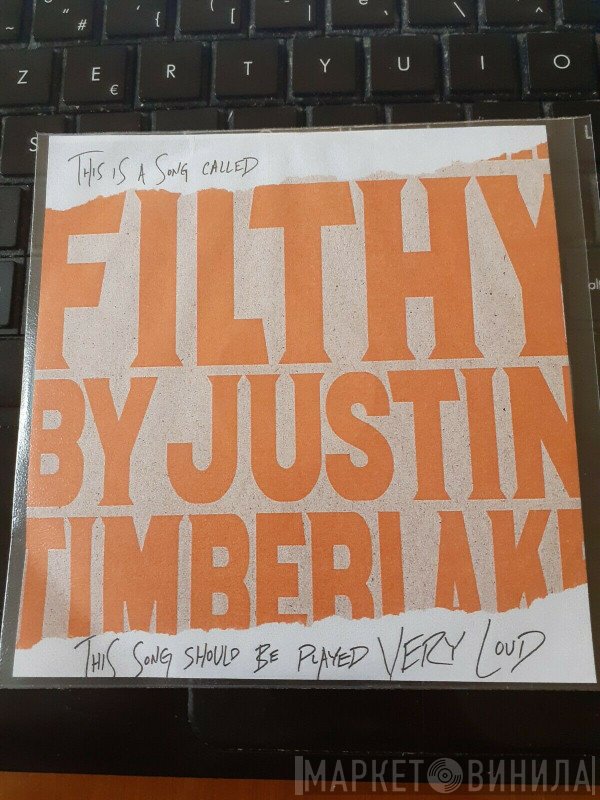 Z E R T Y U I O
€
THIS IS A SONG CALLED
FILTHY
BY JUSTIN
TIMBERLAKE
THIS SONG SHOULD BE PLAYED VERY LOUD
МАРКЕТ ВИНИЛА